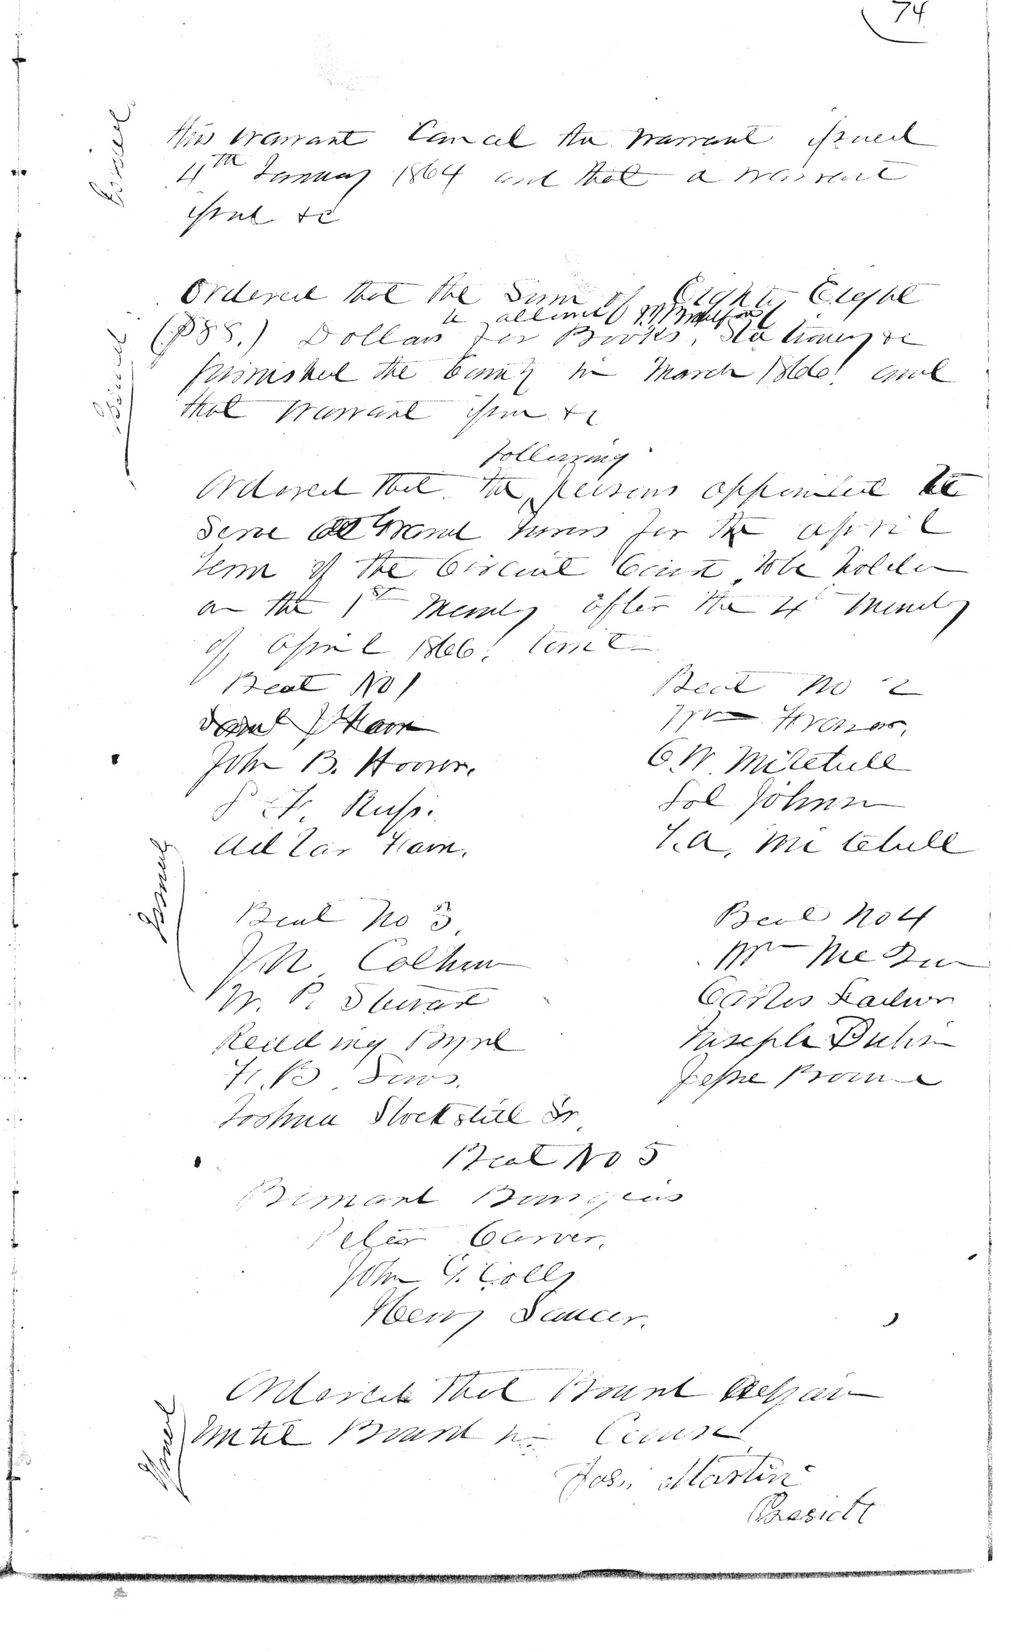 74
this warrant Cancel the warrant issued
4th January 1864 and that a warrant
issue &c
Issued
Ordered that the Sum of Eighty Eight
be allowed
($88.) Dollars for Books, Stationery &c
furnished the County in March 1866. and
that warrant issue &c
Issued
following
Ordered that the persons appointed to
Serve as Grand Jurors for the April
Term of the Circuit Court to be holden
on the 1st Monday after the 4th Monday
of April 1866. towit
Beat No 1
John B. Hoover.
S. F. Russ.
Ham.
Beat No 2
Wm Frazar.
C. W. Mitchell
Sol Johnson
T. A. Mitchell
Issued
Beat No 3.
J. N. Colhun
W. P. Stewart
Redding Byrd
F. B. Sows.
Joshua Stockstill Sr.
Beat No 4
Wm
Carlos
Joseph
Jesse Browne
Beat No 5
Bernard Bourgeois
Peter Carver.
John G. Colly
Henry Saucer.
Issued
Ordered that Board
until Board in Course
Jos. Martin
Presidt